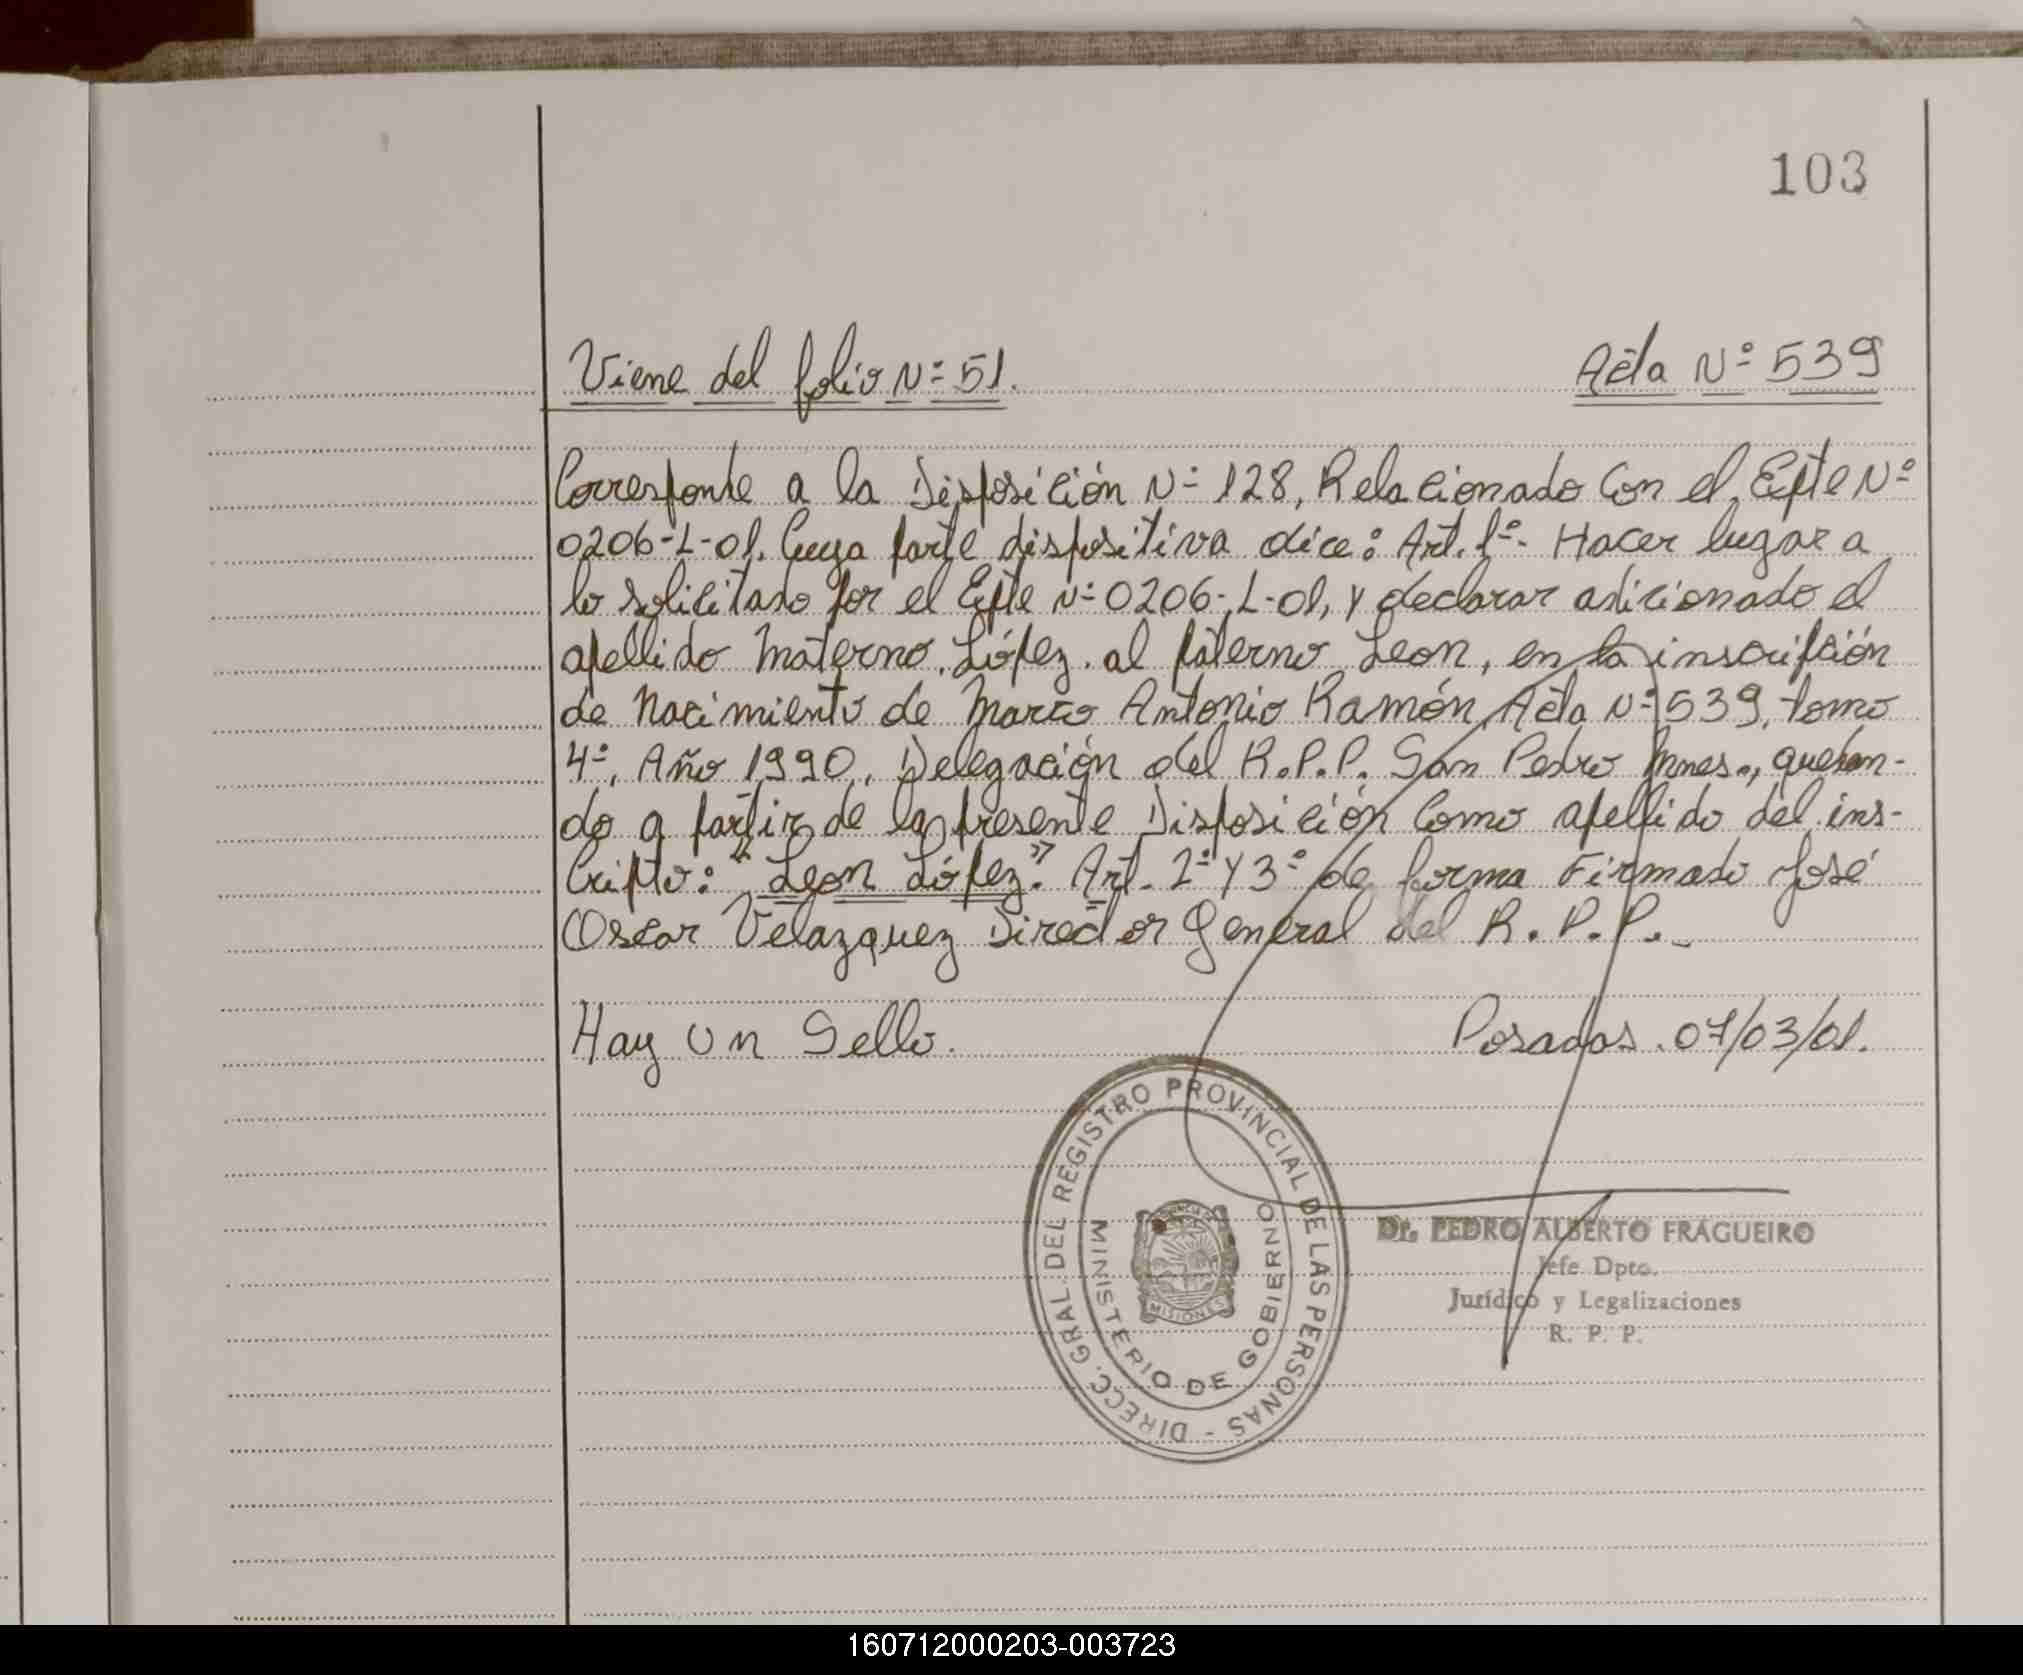 103
Viene del folio Nº 51. Acta Nº 539
Corresponde a la Disposición Nº 128, Relacionado con el Expte Nº
0206-L-01. Cuya parte dispositiva dice: Art. 1º- Hacer lugar a
lo solicitado por el Expte Nº 0206-L-01, y declarar adicionado el
apellido materno López al paterno Leon, en la inscripción
de Nacimiento de Marco Antonio Ramón, Acta Nº 539, tomo
4º, Año 1990, Delegación del R.P.P. San Pedro Mnes., quedan-
do a partir de la presente Disposición como apellido del ins-
cripto: "Leon López". Art. 2º y 3º de forma Firmado José
Oscar Velazquez Director General del R.P.P.-
Hay un Sello. Posadas. 07/03/01.
DIRECC. GRAL. DEL REGISTRO PROVINCIAL DE LAS PERSONAS -
MINISTERIO DE GOBIERNO
MISIONES
Dr. PEDRO ALBERTO FRAGUEIRO
Jefe Dpto.
Jurídico y Legalizaciones
R. P. P.
160712000203-003723